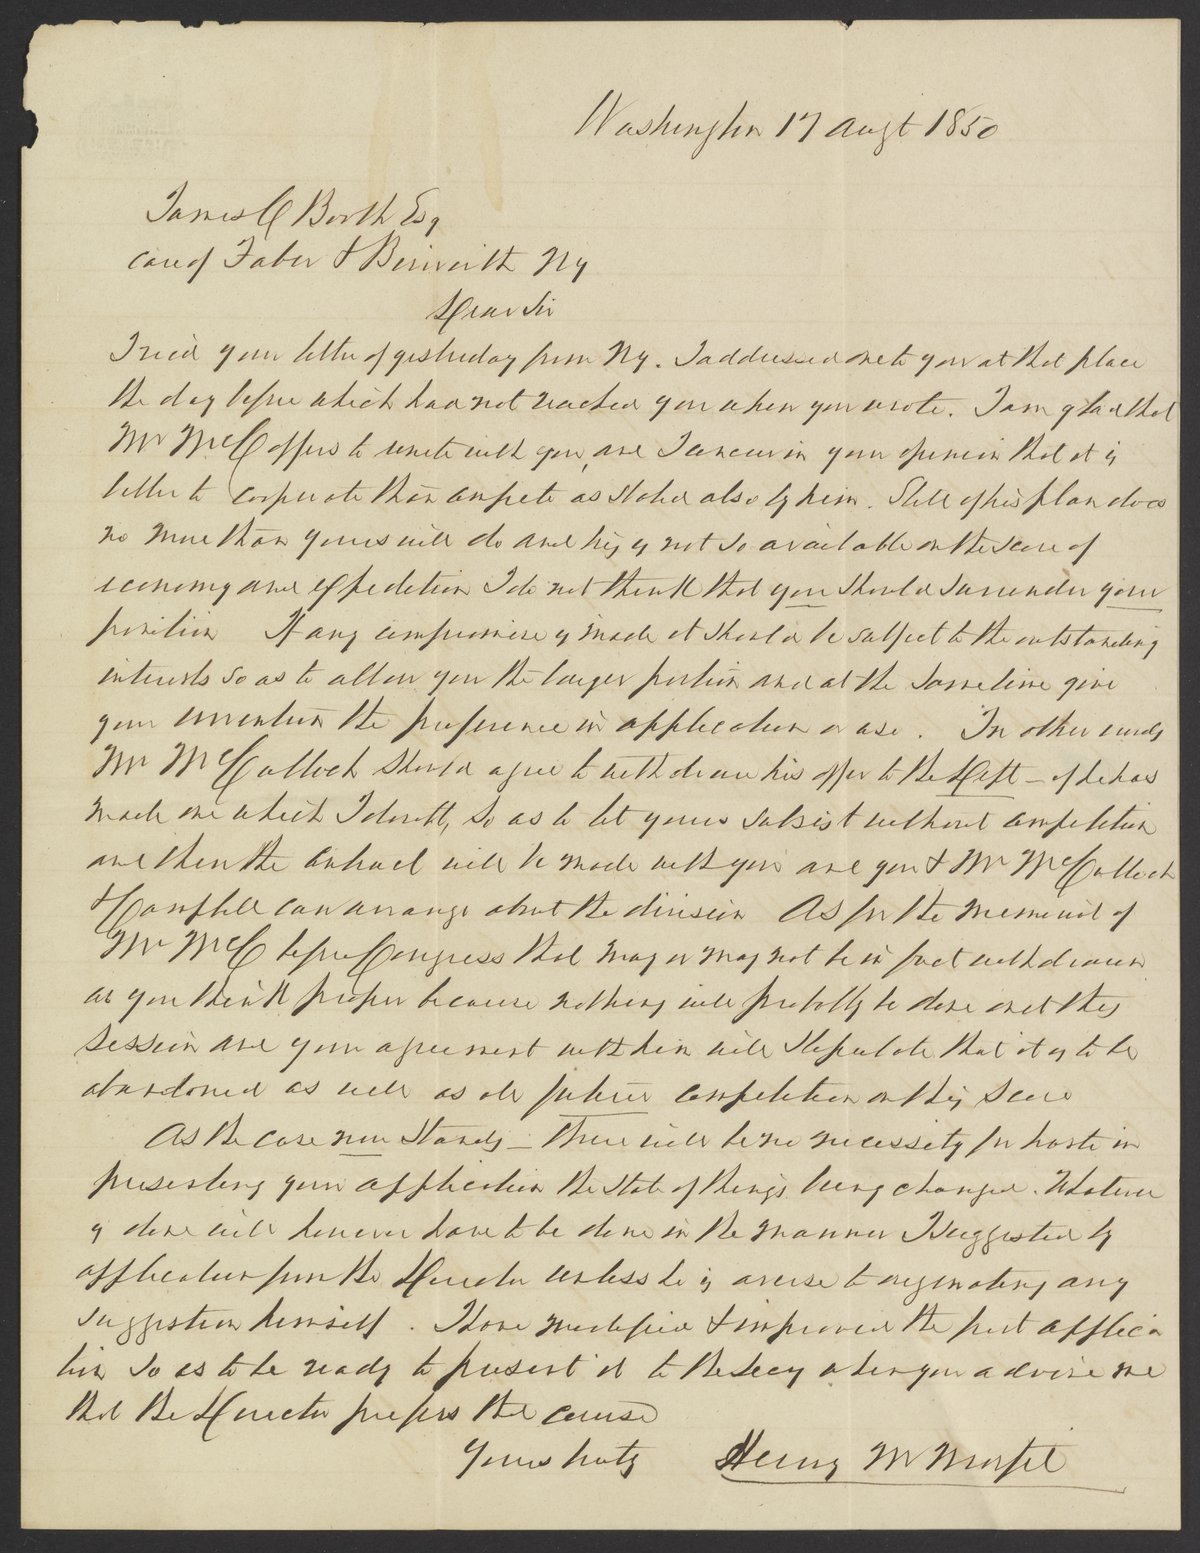 Washington 17 Augt 1850
James C Booth Esq
care of Faber & Bierwirth NY
Dear Sir
I recd your letter of yesterday from NY. I addressed one to you at that place
the day before which had not reached you when you wrote. I am glad that
Mr McC offers to unite with you, and I concur in your opinion that it is
better to cooperate than compete as stated also by him. Still if his plan does
no more than yours will do and his is not so available on the score of
economy and expedition I do not think that you should surrender your
position If any compromise is made it should be subject to the outstanding
interests so as to allow you the larger portion and at the same time give
your invention the preference in application or use. In other words
Mr McCulloch should agree to withdraw his offer to the Dept – if he has
made one which I doubt, so as to let yours subsist without competition
and then the contract will be made with you and you & Mr McCulloch
& Campbell can arrange about the division As for the memorial of
Mr McC before Congress that may or may not be in fact withdrawn
as you think proper because nothing will probably be done on it this
session and your agreement with him will stipulate that it is to be
abandoned as well as all future competition on this score
As the case now stands – there will be no necessity for haste in
presenting your application the state of things being changed. Whatever
is done will however have to be done in the manner I suggested by
application from the Director unless he is averse to originating any
suggestion himself. I have modified & improved the first applica
tion so as to be ready to present it to the Secy when you advise me
that the Director prefers that course
Yours truly Henry M